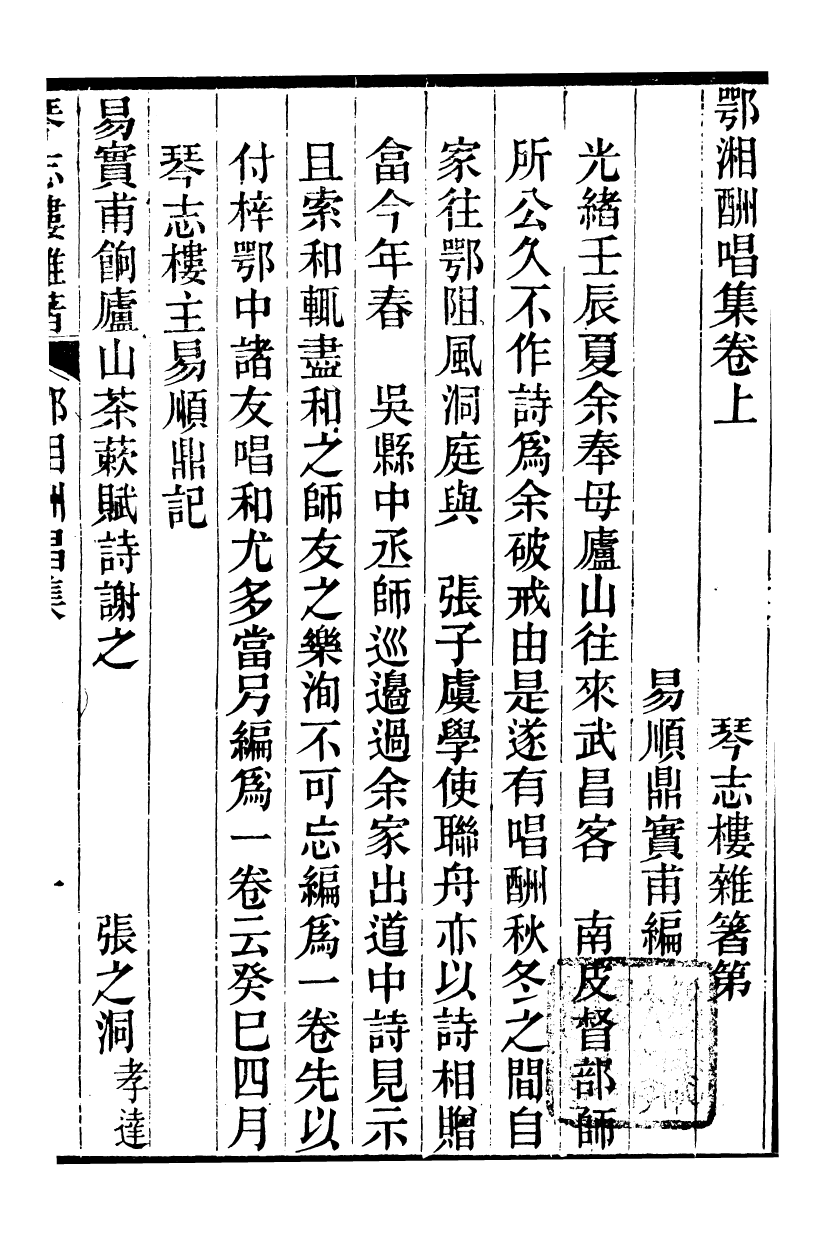 鄂湘酬唱集卷上　琴志樓雜箸第
易順鼎實甫編
光緒壬辰夏余奉母廬山往來武昌客　南皮督部師
所公久不作詩爲余破戒由是遂有唱酬秋冬之間自
家往鄂阻風洞庭與　張子虞學使聯舟亦以詩相贈
畣今年春　吳縣中丞師巡邊過余家出道中詩見示
且索和輒盡和之師友之樂洵不可忘編爲一卷先以
付梓鄂中諸友唱和尤多當另編爲一卷云癸巳四月
琴志樓主易順鼎記
易實甫餉廬山茶蔌賦詩謝之　張之洞孝達
琴志樓雜著　鄂湘酬唱集　一